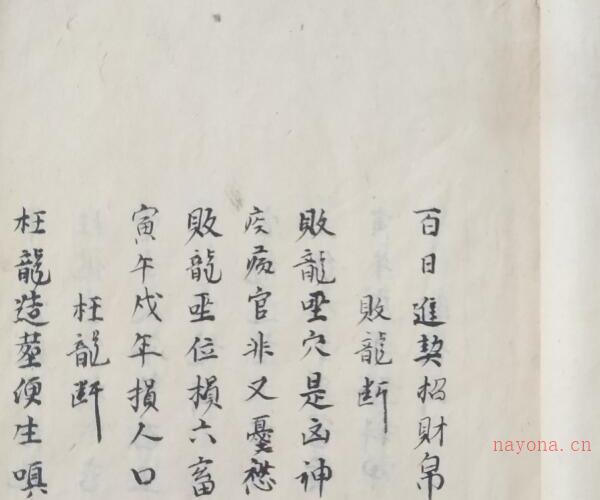 百日進契招財帛
敗龍断
敗龍坐穴是凶神
疾病官非又憂愁
敗龍坐位損六畜
寅午戌年損人口
枉龍断
枉龍造塟便生嗔
nayona.cn